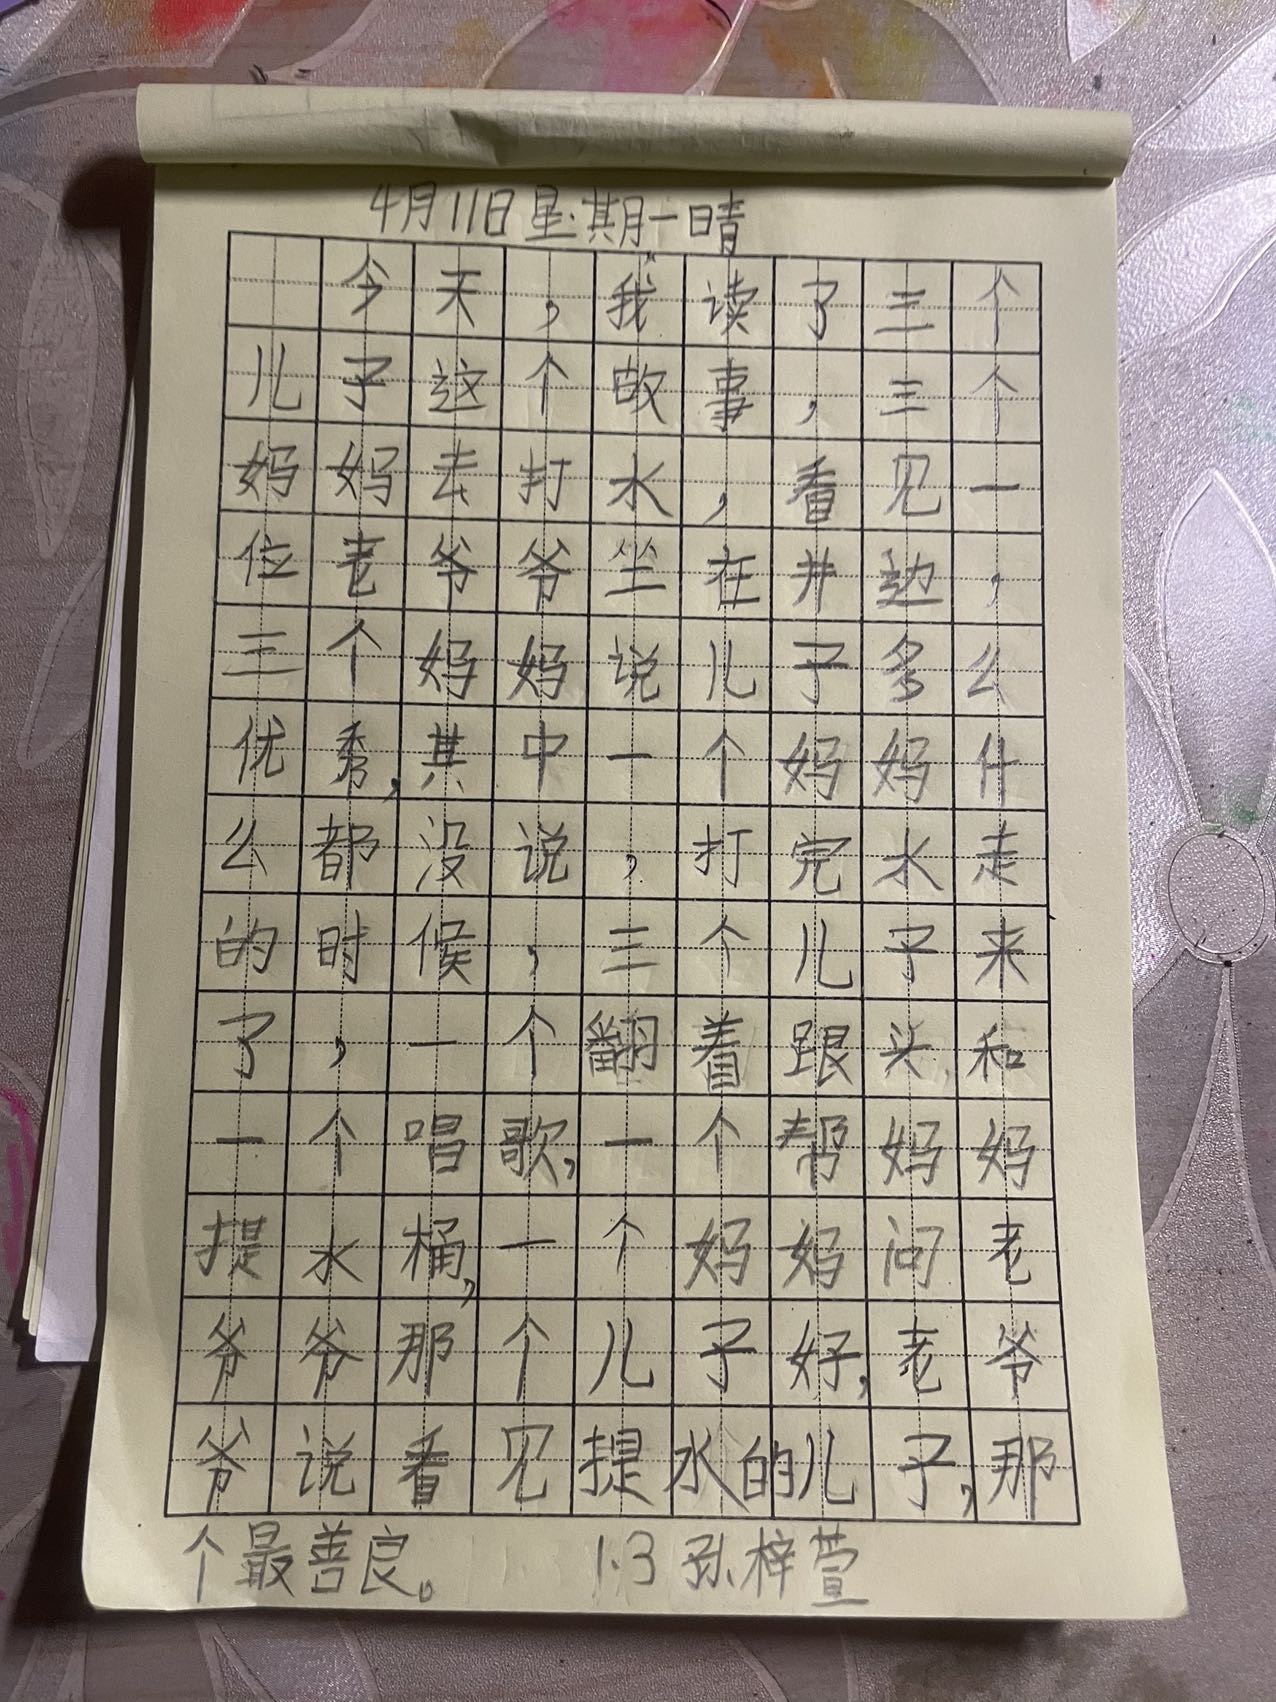 4月11日星期一晴
今天，我读了三个
儿子这个故事，三个
妈妈去打水，看见一
位老爷爷坐在井边，
三个妈妈说儿子多么
优秀，其中一个妈妈什
么都没说，打完水走
的时候，三个儿子来
了，一个翻着跟头，和
一个唱歌，一个帮妈妈
提水桶，一个妈妈问老
爷爷那个儿子好，老爷
爷说看见提水的儿子，那
个最善良。 1.3 孙梓萱